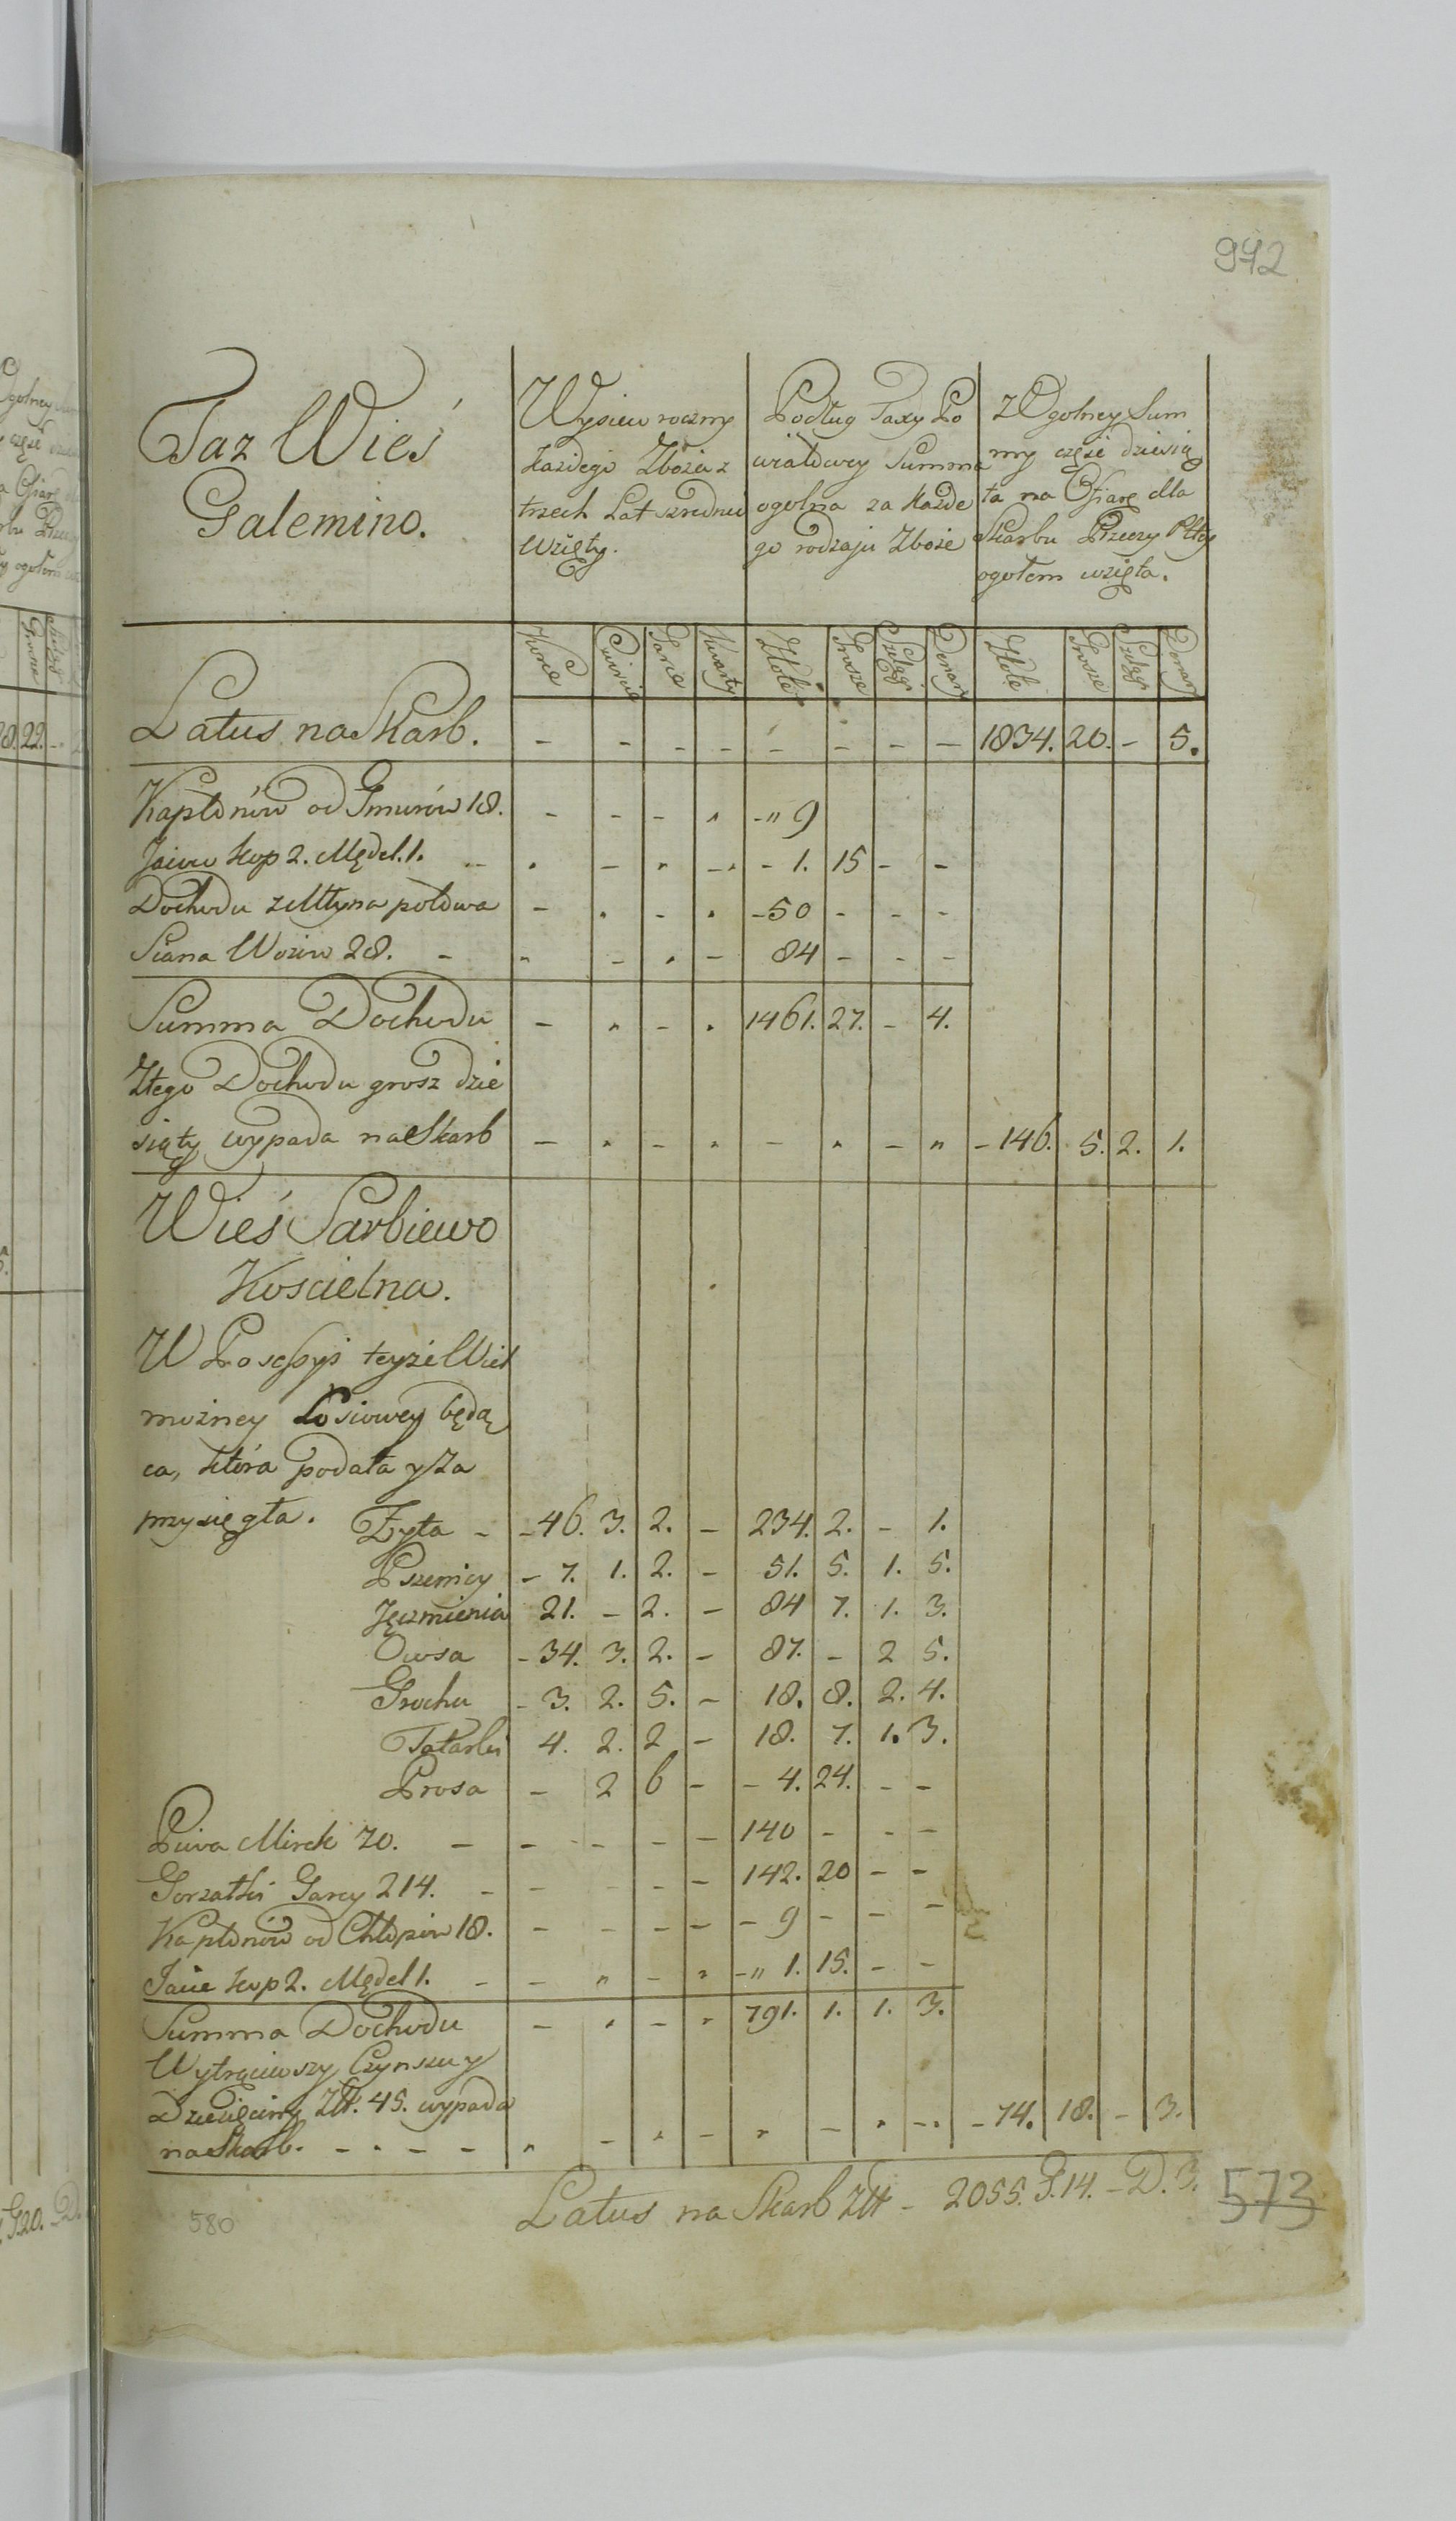 972
Taz Wieś
Galemino.
Wysiew roczny
każdego Zboża z
trzech Lat szredni
wzięty.
Podług Taxy Po
wiatowey Summa
ogolna za każde
go rodzaju Zboże
z Ogolney Sum
my częśc dziesią
ta na Ofiarę dla
Skarbu Rzeczy Pltey
ogołem wzięta.
Korce Cwierci Garce Kwarty Złote Grosze Szelągi Denary Złote Grosze Szelągi Denary
Latus na Skarb. - - - - - - - - 1834. 20. - 5.
Kapłonów od Gmurów 18. - - - - -" 9
Jaiow kop 2. Mędel. 1. - - - - - 1. 15 - -
Dochodu z Młyna połowa - - - - - 50 - - -
Siana Wozów 28. - - - - - 84 - - -
Summa Dochodu - - - - 1461. 27. - 4.
Ztego Dochodu grosz dzie
siąty wypada na Skarb - - - - - - - - - 146. 5. 2. 1.
Wieś Sarbiewo
Koscielna.
W Possessyi teyże Wiel
możney Łosiowey będą
ca, która podała y Za
przysięgła. Żyta - - 46. 3. 2. - 234. 2. - 1.
Pszenicy - 7. 1. 2. - 51. 5. 1. 5.
Jęczmienia 21. - 2. - 84 7. 1. 3.
Owsa - 34. 3. 2. - 87. - 2 5.
Grochu - 3. 2. 5. - 18. 8. 2. 4.
Tatarki 4. 2. 2 - 18. 7. 1. 3.
Prosa - 2 6 - - 4. 24. - -
Piwa Mirek 70. - - - - - 140 - - -
Gorzałki Garcy 214. - - - - - 142. 20 - -
Kapłonów od Chłopów 18. - - - - - 9 - - -
Jaie kop 2. Mędel 1. - - - - - -" 1. 15. - -
Summa Dochodu - - - - 791. 1. 1. 3.
Wytrąciwszy Czynszu y
Dziesięciny Złt. 45. wypada
na Skarb. - - - - - - - - - - - - - 74. 18. - 3.
Latus na Skarb Złt - 2055. G. 14. - D. 3.
573
580